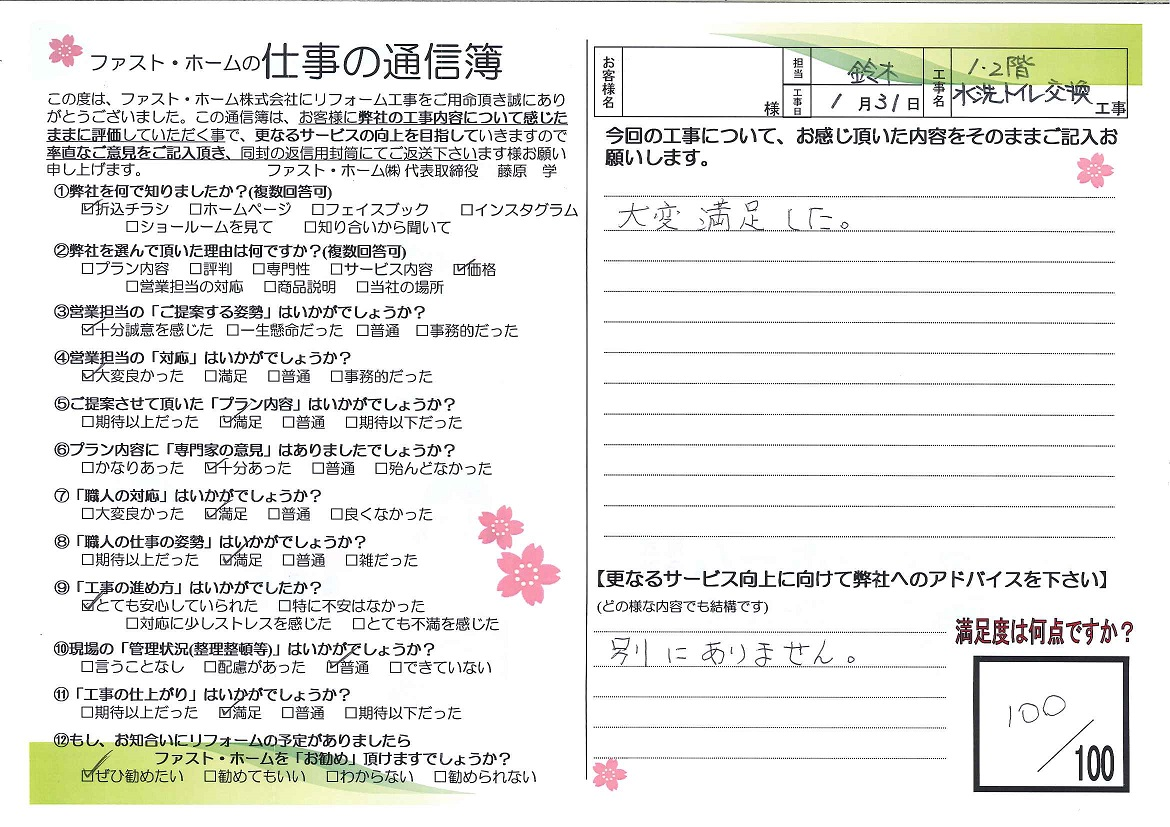 ファスト・ホームの仕事の通信簿
この度は、ファスト・ホーム株式会社にリフォーム工事をご用命頂き誠にあり
がとうございました。この通信簿は、お客様に弊社の工事内容について感じた
ままに評価していただく事で、更なるサービスの向上を目指していきますので
率直なご意見をご記入頂き、同封の返信用封筒にてご返送下さいます様お願い
申し上げます。 ファスト・ホーム㈱ 代表取締役 藤原 学
①弊社を何で知りましたか?(複数回答可)
☑折込チラシ □ホームページ □フェイスブック □インスタグラム
□ショールームを見て □知り合いから聞いて
②弊社を選んで頂いた理由は何ですか?(複数回答可)
□プラン内容 □評判 □専門性 □サービス内容 ☑価格
□営業担当の対応 □商品説明 □当社の場所
③営業担当の「ご提案する姿勢」はいかがでしょうか?
☑十分誠意を感じた □一生懸命だった □普通 □事務的だった
④営業担当の「対応」はいかがでしょうか?
☑大変良かった □満足 □普通 □事務的だった
⑤ご提案させて頂いた「プラン内容」はいかがでしょうか?
□期待以上だった ☑満足 □普通 □期待以下だった
⑥プラン内容に「専門家の意見」はありましたでしょうか?
□かなりあった ☑十分あった □普通 □殆んどなかった
⑦「職人の対応」はいかがでしょうか?
□大変良かった ☑満足 □普通 □良くなかった
⑧「職人の仕事の姿勢」はいかがでしょうか?
□期待以上だった ☑満足 □普通 □雑だった
⑨「工事の進め方」はいかがでしたか?
☑とても安心していられた □特に不安はなかった
□対応に少しストレスを感じた □とても不満を感じた
⑩現場の「管理状況(整理整頓等)」はいかがでしょうか?
□言うことなし □配慮があった ☑普通 □できていない
⑪「工事の仕上がり」はいかがでしょうか?
□期待以上だった ☑満足 □普通 □期待以下だった
⑫もし、お知合いにリフォームの予定がありましたら
ファスト・ホームを「お勧め」頂けますでしょうか?
☑ぜひ勧めたい □勧めてもいい □わからない □勧められない
お客様名 様 担当 鈴木 工事日 1月31日 工事名 1・2階
水洗トイレ交換 工事
今回の工事について、お感じ頂いた内容をそのままご記入お
願いします。
大変満足した。
【更なるサービス向上に向けて弊社へのアドバイスを下さい】
(どの様な内容でも結構です)
別にありません。
満足度は何点ですか?
100
/100